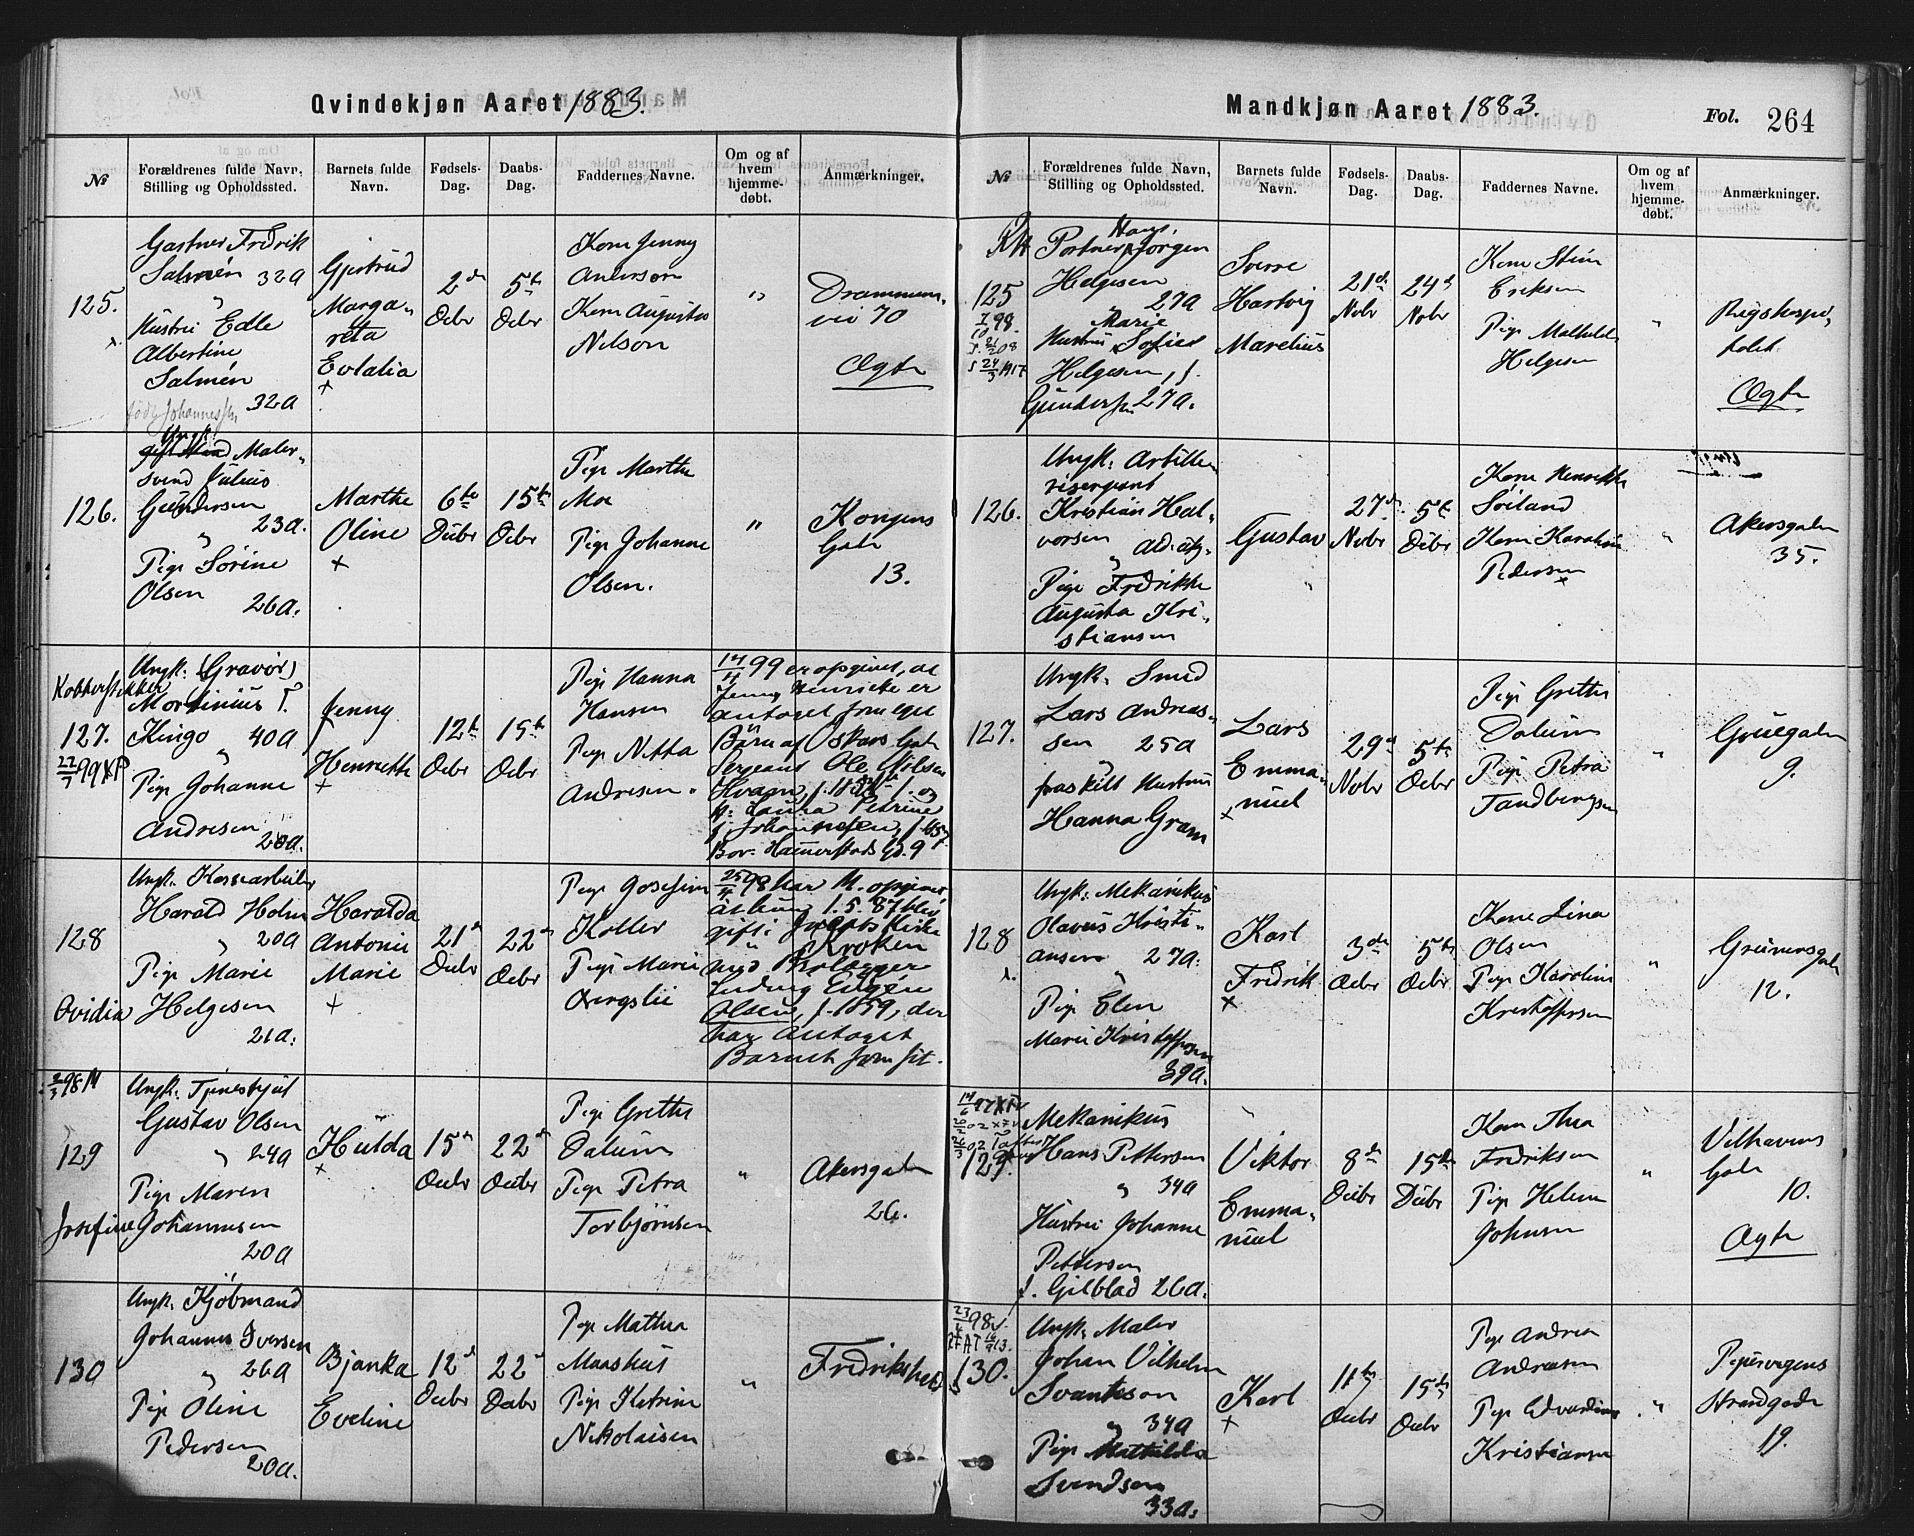 Qvindekjøn Aaret 1883.
№
Forældrenes fulde Navn,
Stilling og Opholdssted.
Barnets fulde
Navn.
Fødsels-
Dag.
Daabs-
Dag.
Faddernes Navne.
Om og af
hvem
hjemme-
døbt.
Anmærkninger.
125.
Gartner Fredrik
Salmén 32a
"
Hustru Edle
Albertine
Salmén
32a
Gjertrud
Marga-
reta
Eulalia
+
2d
Decbr
5te
Decbr
Kone Jenny
Anderson
Kone Augusta
Nelson
"
Drammens-
vei 70
Ægte
126.
Ungk.
Maler-
svend Julius
Gundersen
23a.
"
Pige Sørine
Olsen 26a.
Marthe
Oline
+
6te
Decbr
15te
Decbr
Pige Marthe
Moe
Pige Johanne
Olsen.
"
Kongens
Gade
13.
Kobberstikker
127.
22/7 99 XP
Ungk: (Gravør)
Mortinius T.
Kingo 40a
"
Pige Johanne
Andresen
20a.
Jenny
Henriette
+
12te
Decbr
15te
Decbr
Pige Hanna
Hansen
Pige Netta
Andresen.
14/4 99 er opgivet, at
Jenny Henriette er
antaget som eget
Barn af Oskars Gade
Sergeant Ole Nilsen
Hvaen, og
H: Laura Petrine
f. Johannesen,
Bor: Hammerstads Gd. 9
128
Ovidia
Ungk. Kassearbeider
Harald Holm
" 20a
Pige Marie
Helgesen
21a.
Haralda
Antonie
Marie
+
21de
Decbr
22de
Decbr
Pige Josefine
Koller
Pige Marie
25/4 98 har M. opgivet
at hun 1.5.87 blev
gift i Jacobs Kirke
med
Ludvig Eugén
Olsen, f. 1859, der
har antaget
Barnet som sit.
2/3 98 M
129
Josefine
Ungk: Tjenestkjul
Gustav Olsen
" 24a
Pige Maren
Johannesen
20a
Hulda
+
15de
Decbr
22de
Decbr
Pige Grethe
Dalum
Pige Petra
Torbjørnsen
"
Akersgaden
26.
130
Ungk. Kjøbmand
Johannes Iversen
" 26a
Pige Oline
Pedersen
20a.
Bjanka
Eveline
12de
Decbr
22de
Decbr
Pige Mathea
Maashus
Pige Katrine
Nikolaisen
"
Fredrikshald
Mandkjøn Aaret 1883.
Fol. 264
№
Forældrenes fulde Navn,
Stilling og Opholdssted.
Barnets fulde
Navn.
Fødsels-
Dag.
Daabs-
Dag.
Faddernes Navne.
Om og af
hvem
hjemme-
døbt.
Anmærkninger.
125
Hans
Portner Jørgen
Helgesen
27a
Marie
Hustru Sofie
Helgesen, f.
Gundersen 27a.
Sverre
Hartvig
Marelius
21de
Novbr
24de
Novbr
Kone Stine
Eriksen
Pige Mathilde
Helgesen
"
Rigshospi-
talet.
Ægte
126.
Ungk: Artille-
risergeant
Kristian Hal-
vorsen
"
Pige Fredrikke
Augusta Kri-
stiansen
Gustav
27de
Novbr
5te
Decbr
Kone Henrikke
Søiland
Kone Karoline
Pedersen
"
Akersgaden
35.
127.
Ungk. Smed
Lars Andreas-
sen 25a
"
fraskilt Hustru
Hanna Gram
Lars
Emma-
nuel
+
29de
Novbr
5te
Decbr
Pige Grethe
Dalum
Pige Petra
Tandbergsen
"
Gruegaden
9.
128
Ungk: Mekanikus
Olavus Kristi-
ansen 27a.
"
Pige Elen
Marie Kristoffersen
39a.
Karl
Fredrik
+
3de
Decbr
5te
Decbr
Kone Lina
Olsen
Pige Karoline
Kristoffersen
"
Grünersgaden
12.
129.
Mekanikus
Hans Pettersen
" 34a
Hustru Johanne
Pettersen
f. Gilblad 26a.
Viktor
Emma-
nuel
8de
Decbr
15de
Decbr
Kone Thea
Fredriksen
Pige Helene
Johnsen
"
Vilhavens
Gade
10.
Ægte
130.
Ungk. Maler
Johan Vilhelm
Svanteson
" 34a
Pige Mathilda
Svendsen
33a.
Karl
+
11te
Decbr
15de
Decbr
Pige Andrea
Andreasen
Pige Edvardine
Kristiansen
"
Pipervigens
Strandgade
19.